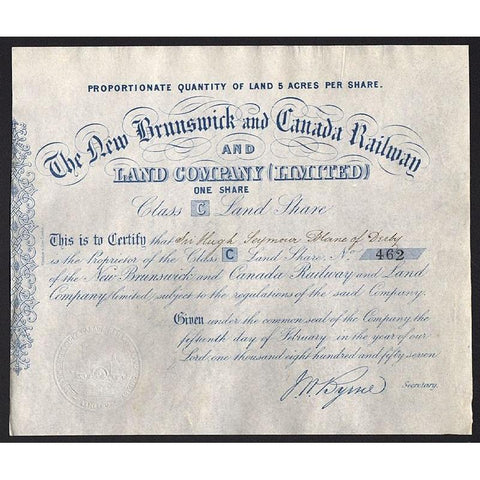 PROPORTIONATE QUANTITY OF LAND 5 ACRES PER SHARE.
The New Brunswick and Canada Railway
AND
LAND COMPANY (LIMITED)
ONE SHARE
Class C Land Share
This is to Certify that Sir Hugh Seymour Blane of Derby
is the Proprietor of the Class C Land Share, No. 462
of the New Brunswick and Canada Railway and Land
Company, limited, subject to the regulations of the said Company.
Given under the common seal of the Company, the
fifteenth day of February, in the year of our
Lord one thousand eight hundred and fifty seven
J. W. Byrne
Secretary.